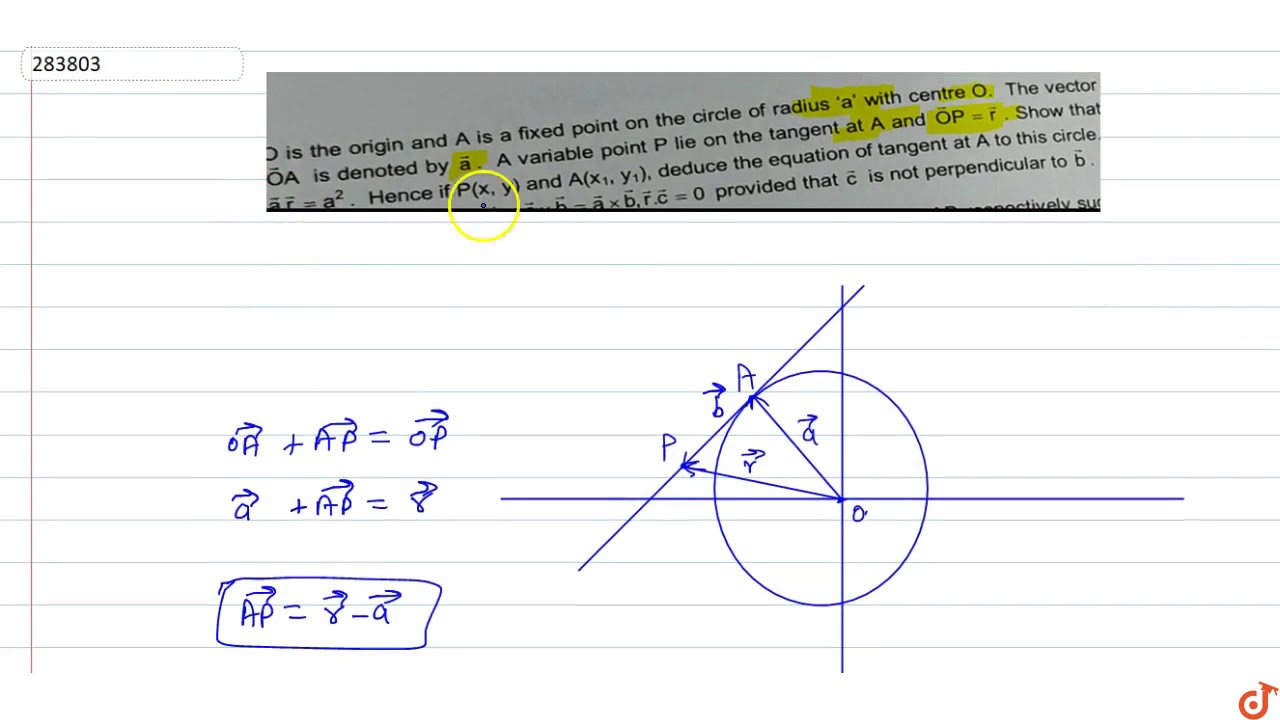 283803
O is the origin and A is a fixed point on the circle of radius 'a' with centre O. The vector
O⃗A is denoted by a⃗. A variable point P lie on the tangent at A and O⃗P = r⃗. Show that
a⃗ r⃗ = a². Hence if P(x, y) and A(x₁, y₁), deduce the equation of tangent at A to this circle.
× b⃗ = a⃗ × b⃗, r⃗.c⃗ = 0 provided that c⃗ is not perpendicular to b⃗.
respectively
A
b⃗
a⃗
P
r⃗
O
OA⃗ + AP⃗ = OP⃗
a⃗ + AP⃗ = r⃗
AP⃗ = r⃗ – a⃗